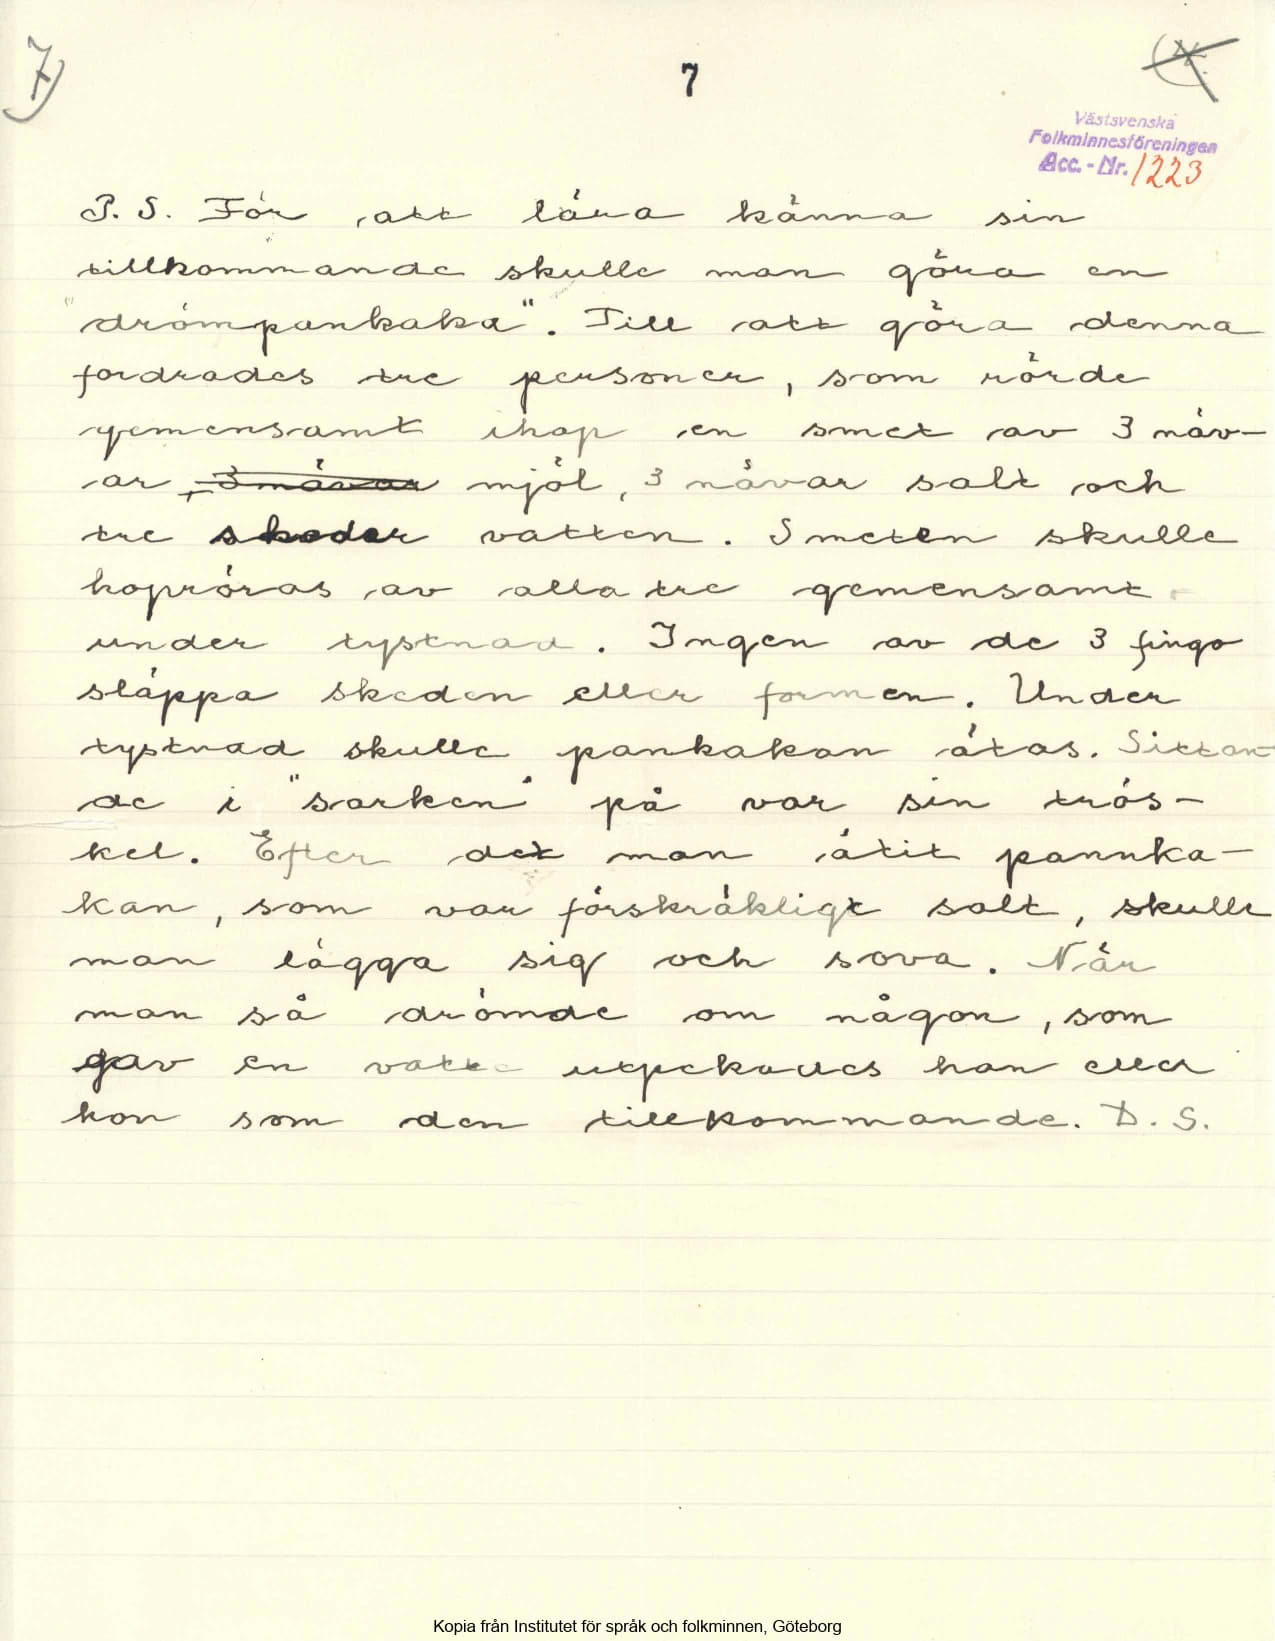 7
7
Västsvenska
Folkminnesföreningen
Acc.-Nr. 1223
P. S. För att lära känna sin
tillkommande skulle man göra en
"drömpankaka". Till att göra denna
fordrades tre personer, som rörde
gemensamt ihop en smet av 3 näv-
ar, 3 nävar mjöl, 3 nävar salt och
tre skedar vatten. Smeten skulle
hopröras av alla tre gemensamt
under tystnad. Ingen av de 3 fingo
släppa skeden eller formen. Under
tystnad skulle pankakan ätas. Sittan-
de i "särken" på var sin trös-
kel. Efter det man ätit pannka-
kan, som var förskräkligt salt, skulle
man lägga sig och sova. När
man så drömde om någon, som
gav en vatten utpekades han eller
hon som den tillkommande. D. S.
Kopia från Institutet för språk och folkminnen, Göteborg